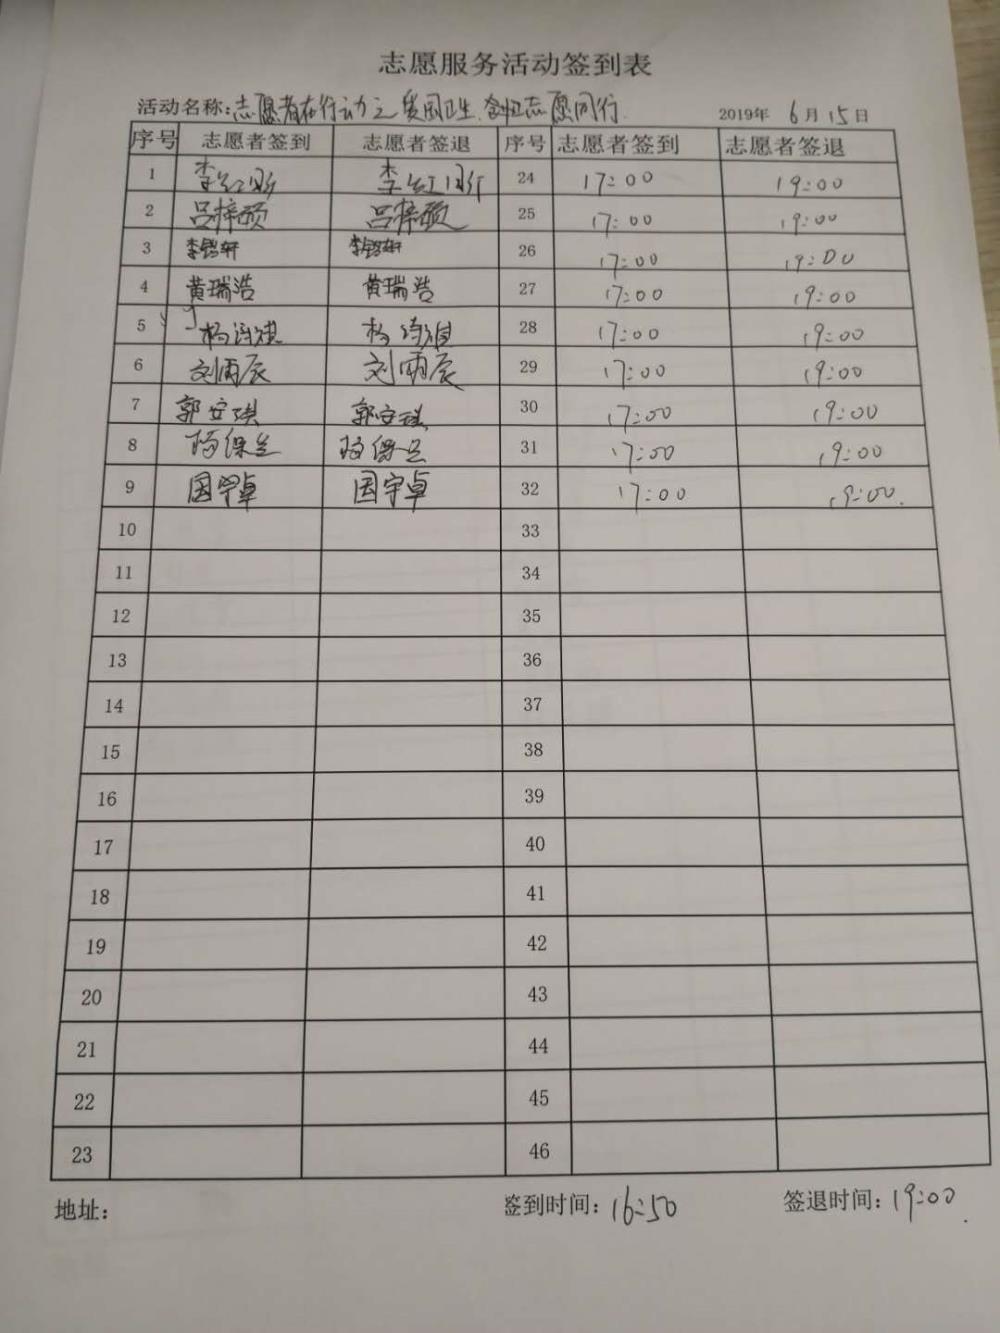 志愿服务活动签到表
活动名称:志愿者在行动之爱国卫生、志愿同行 2019年 6月15日
序号 志愿者签到 志愿者签退 序号 志愿者签到 志愿者签退
1 李红 李红 24 17:00 19:00
2 吕梓硕 吕梓硕 25 17:00 19:00
3 李 轩 李 轩 26 17:00 19:00
4 黄瑞浩 黄瑞浩 27 17:00 19:00
5 杨 杨 28 17:00 19:00
6 刘雨辰 刘雨辰 29 17:00 19:00
7 郭安琪 郭安琪 30 17:00 19:00
8 杨保 杨保 31 17:00 19:00
9 国宇卓 国宇卓 32 17:00 19:00.
10 33
11 34
12 35
13 36
14 37
15 38
16 39
17 40
18 41
19 42
20 43
21 44
22 45
23 46
地址: 签到时间:16:50 签退时间:19:00.